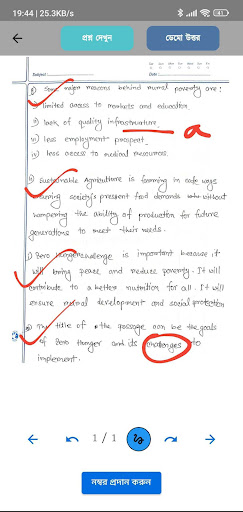 19:44 | 25.3KB/s
প্রশ্ন দেখুন
ডেমো উত্তর
Subject:
Date:
Some major reasons behind rural poverty are:
i) limited access to markets and education.
ii) lack of quality infrastructure.
a
iii) less employment prospect.
iv) less access to medical resources.
Sustainable Agriculture is farming in safe ways
society's pressent food demands without
hampering the ability of production for future
generations to meet their needs.
Zero hunger challenge is important because it
will bring peace and reduce poverty. It will
contribute to a better nutrition for all. It will
ensure development and social protection
The title of the passage can be the goals
of Zero Hunger and its challenges to
implement.
1 / 1
নম্বর প্রদান করুন